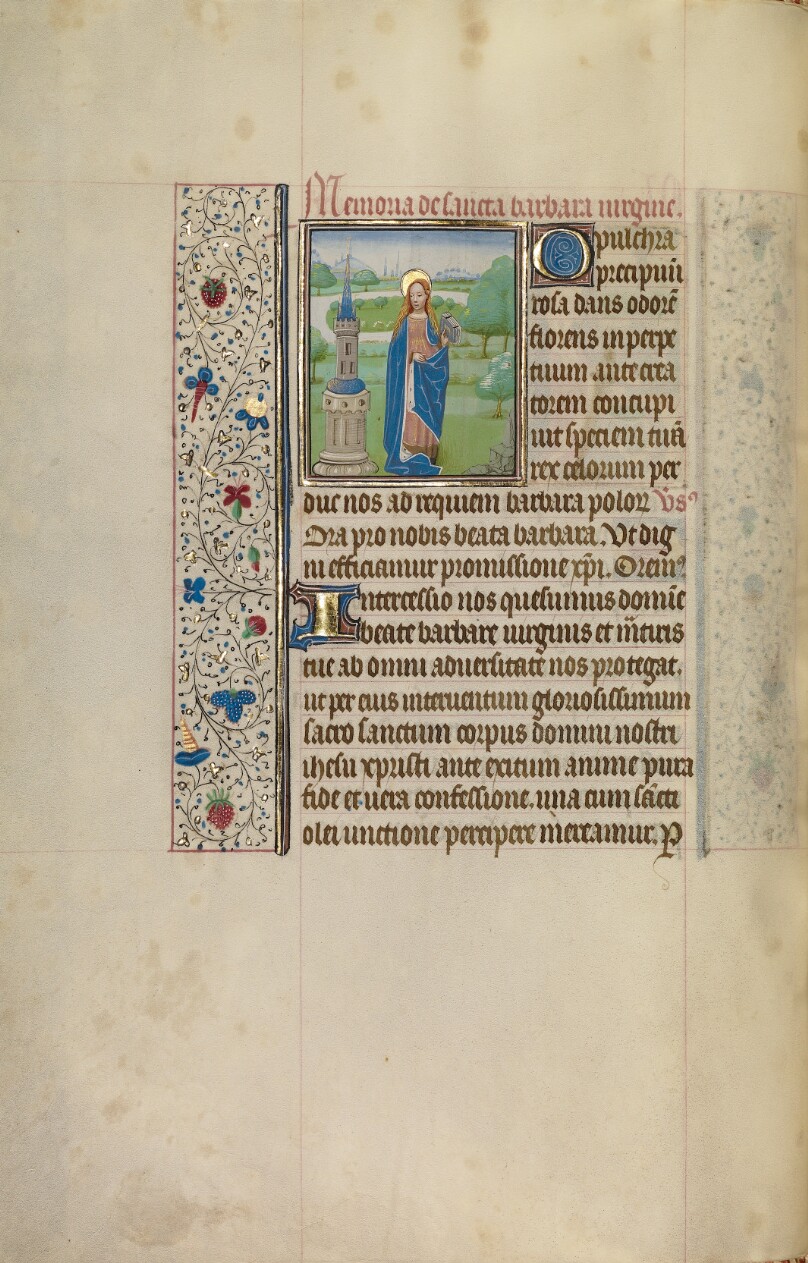 Memoria de sancta barbara uirgine.
O pulchra
precipuū
rosa dans odorē
florens in perpe
tuum ante crea
torem concupi
uit speciem tuā
rex celorum per
duc nos ad requiem barbara poloꝝ V̄s⁹
Ora pro nobis beata barbara. Vt dig
ni efficiamur promissione xp̄i. Orem⁹
Intercessio nos quesumus domīe
beate barbare uirginis et m̄tiris
tue ab omni aduersitate nos protegat.
ut per eius interuentum gloriosissimum
sacro sanctum corpus domini nostri
ihesu xpristi ante exitum anime pura
fide et uera confessione. una cum sācti
olei unctione percipere mereamur. P